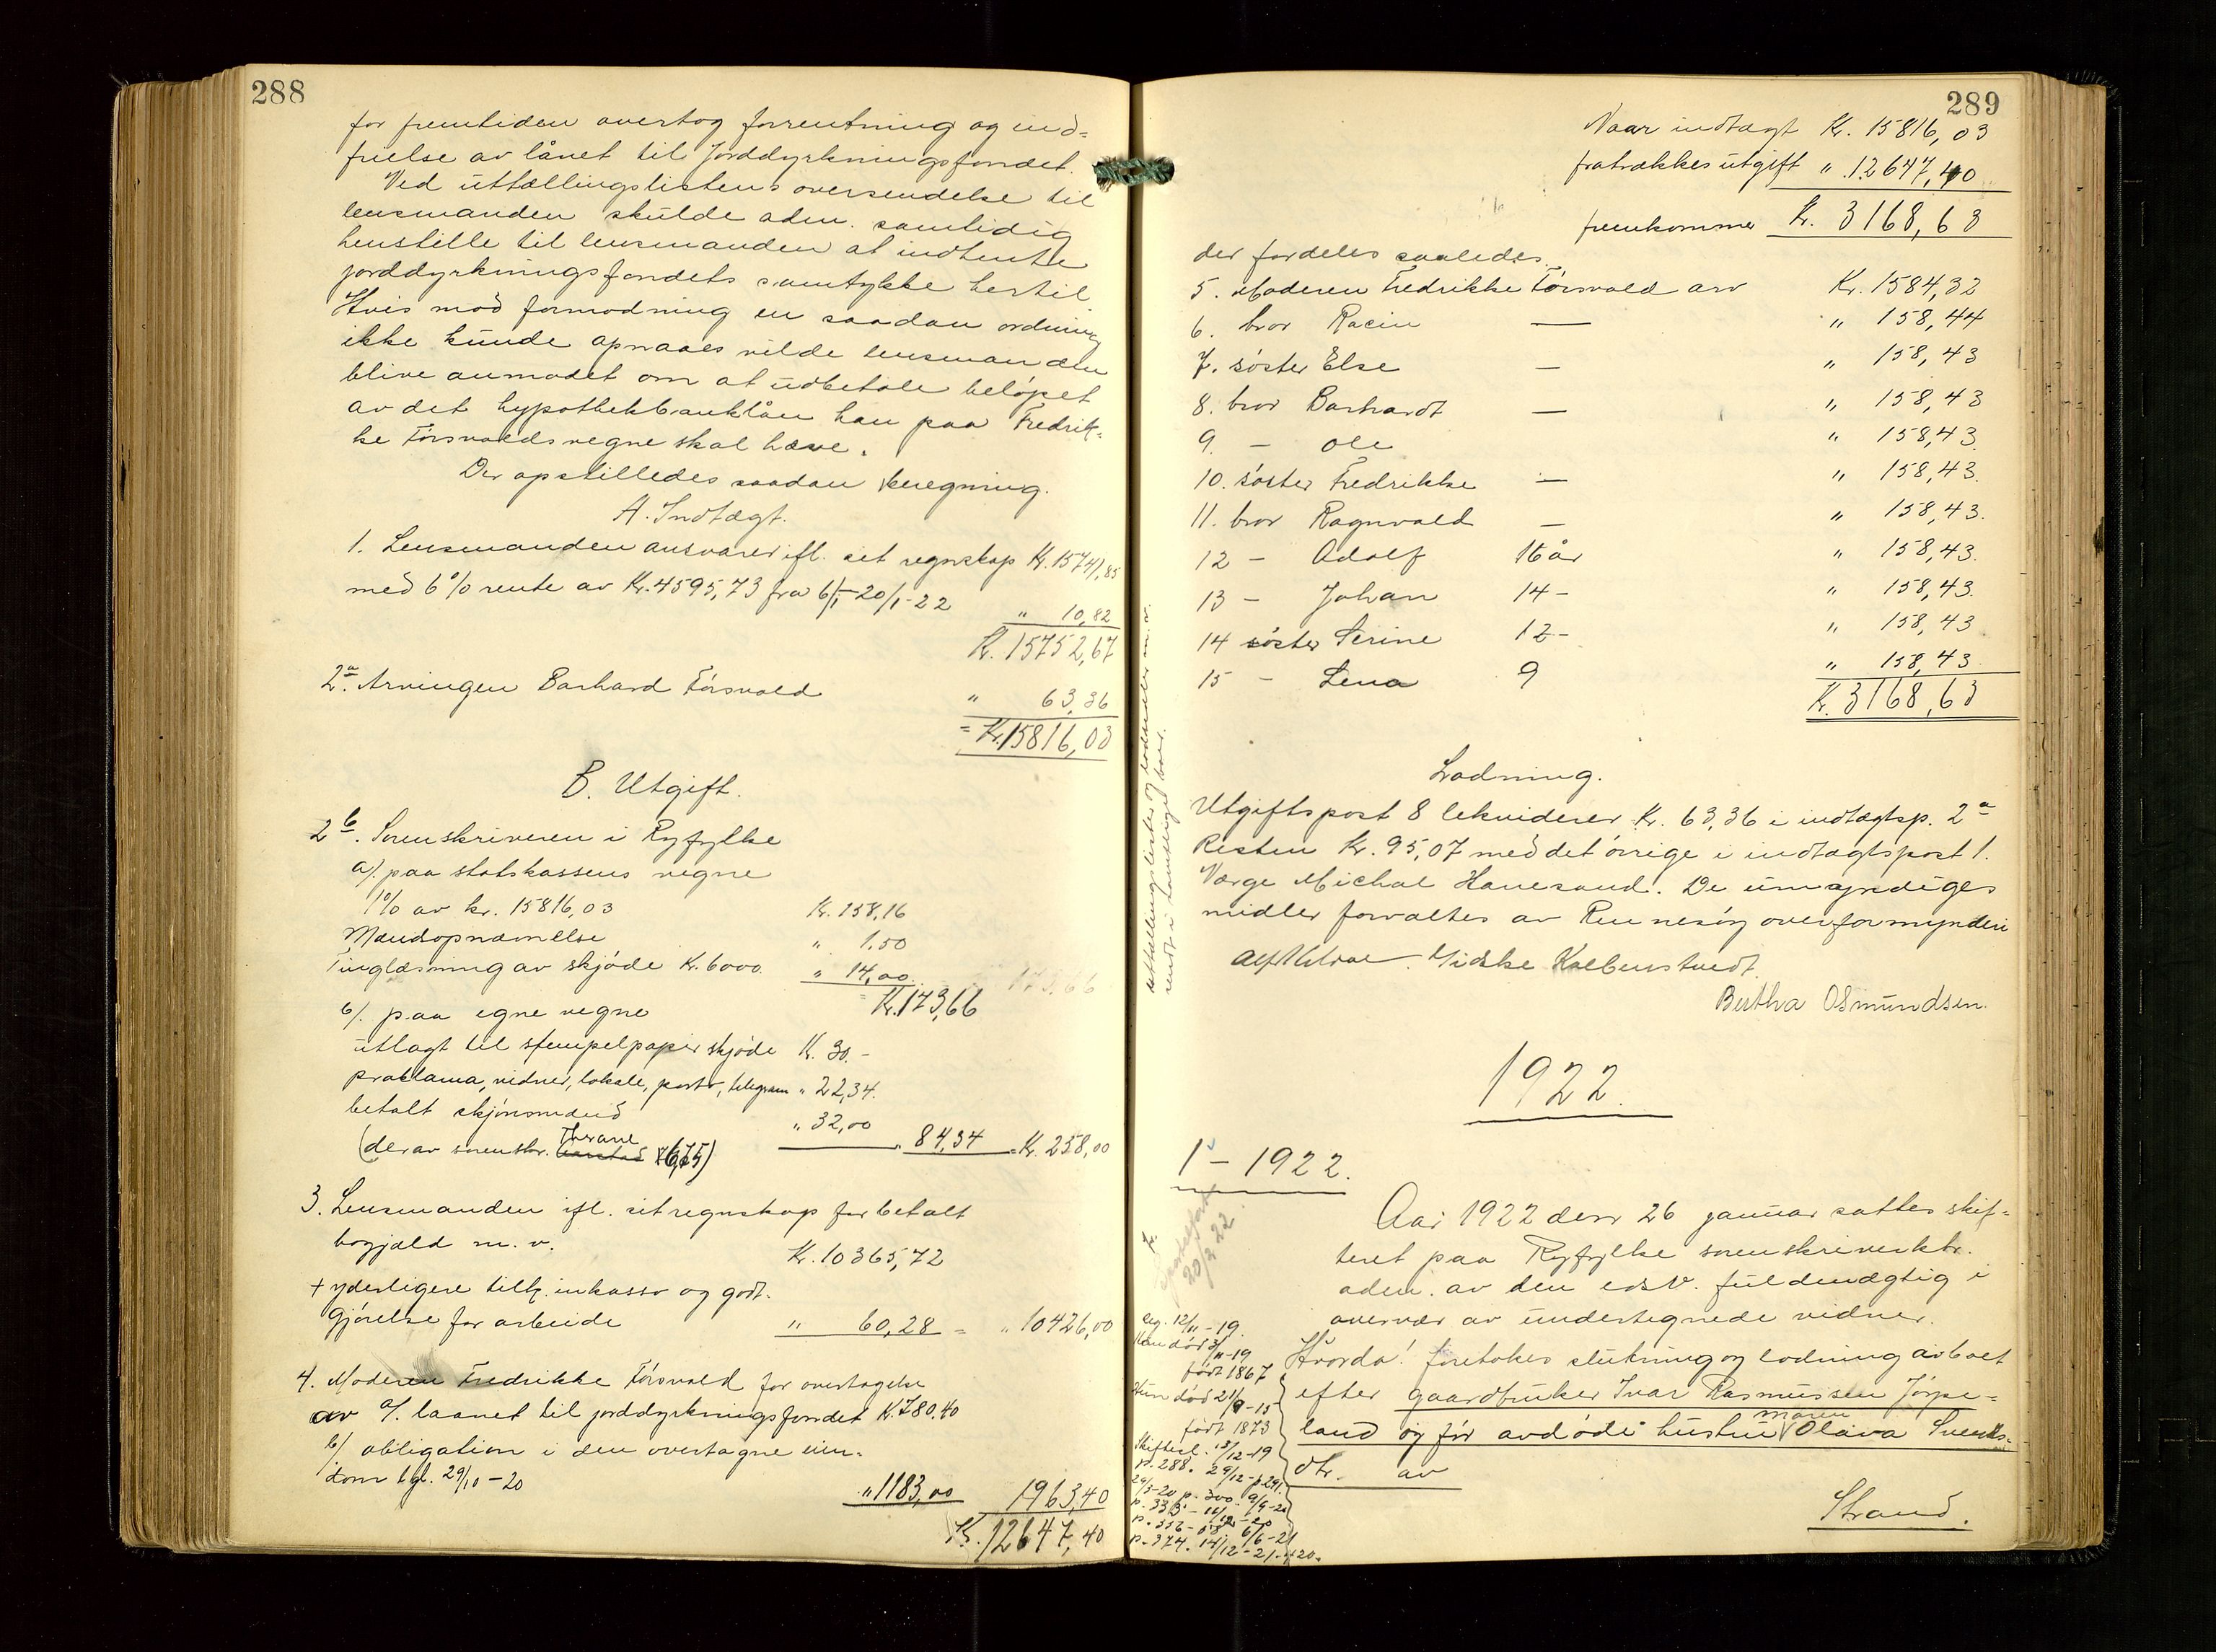 288
for fremtiden overtog forrentning og ind=
frielse av lånet til Jorddyrkningsfondet.
Ved uttællingslistens oversendelse til
lensmanden skulde adm. samtidig
henstille til lensmanden at indhente
jorddyrkningsfondets samtykke hertil
Hvis mod formodning en saadan ordning
ikke kunde opnaaes vilde lensmanden
blive anmodet om at utbetale beløpet
av det hypothekbanklån han paa Fredrik=
ke Førsvolds vegne skal hæve.
Der opstilledes saadan beregning.
A. Indtægt.
1. Lensmanden ansvarer ifl. sit regnskap Kr. 15741,85
med 6% rente av Kr. 4595,73 fra 6/1-20/1-22 " 10,82
Kr. 15752,67
2a. Arvingen Barhard Førsvold " 63,36
= Kr. 15816,03
B. Utgift.
2b. Sorenskriveren i Ryfylke
a/. paa statskassens vegne
1% av kr. 15816,03 Kr. 158,16
Mændsopnævnelse " 1.50
Tinglæsning av skjøde Kr. 6000. " 14,00
Kr. 173,66
b/. paa egne vegne
utlagt til stempelpapir skjøde Kr. 30.-
proklama, vidner, lokale, porto, telegram " 22,34.
betalt skjønsmænd " 32,00
" 84,34 = Kr. 258,00
(derav sorenskr. Therane 6,75)
3. Lensmanden ifl. sit regnskap for betalt
bogjæld m. v. Kr. 10365,72
+ yderligere tillæg inkasso og godt-
gjørelse for arbeide " 60,28 = " 10426,00
4. Moderen Fredrikke Førsvold for overtagelse
av a/. laanet til jorddyrkningsfondet Kr. 780.40
b/ obligation i den overtagne eien-
dom tgl. 29/10-20 " 1183,00 1963,40
Kr. 12647,40
289
Naar indtægt Kr. 15816,03
fratrækkes utgift " 12647,40
fremkommer Kr. 3168,63
der fordeles saaledes.
5. Moderen Fredrikke Førsvold arv Kr. 1584,32
6. bror Racin — " 158,44
7. søster Else — " 158,43
8. bror Barhardt — " 158,43
9. - Ole " 158,43
10. søster Fredrikke — " 158,43.
11. bror Ragnvald — " 158,43.
12 - Adolf 16 år " 158,43.
13 - Johan 14 - " 158,43.
14 søster Serine 12 - " 158,43
15 - Lena 9 " 158,43.
Kr. 3168,63
Lodning.
Utgiftspost 8 lekviderer Kr. 63,36 i indtægtsp. 2a
Resten Kr. 95,07 med det øvrige i indtægtspost 1.
Værge Michal Hanesand. De umyndiges
midler forvaltes av Rennesøy overformynderi
Giske Kolbenstvedt.
Bertha Osmundsen.
1922.
1 - 1922.
Aar 1922 den 26 januar sattes skif=
teret paa Ryfylke sorenskriverktr.
adm. av den edsv. fuldmægtig i
overvær av undertegnede vidner.
Hvorda! foretokes slutning og lodning av boet
efter gaardbruker Ivar Rasmussen Jørpe=
land og før avdøde hustru Maren Olava Svends-
dtr. av
Strand.
uttællingslister og lodsedler m. v.
sendt
20/2 22
F.
Reg. 12/11-19.
Han død 3/11-19
født 1867
Hun død 21/9-15
født 1873
Skiftesl. 13/12-19
p. 288. 29/12- p. 291.